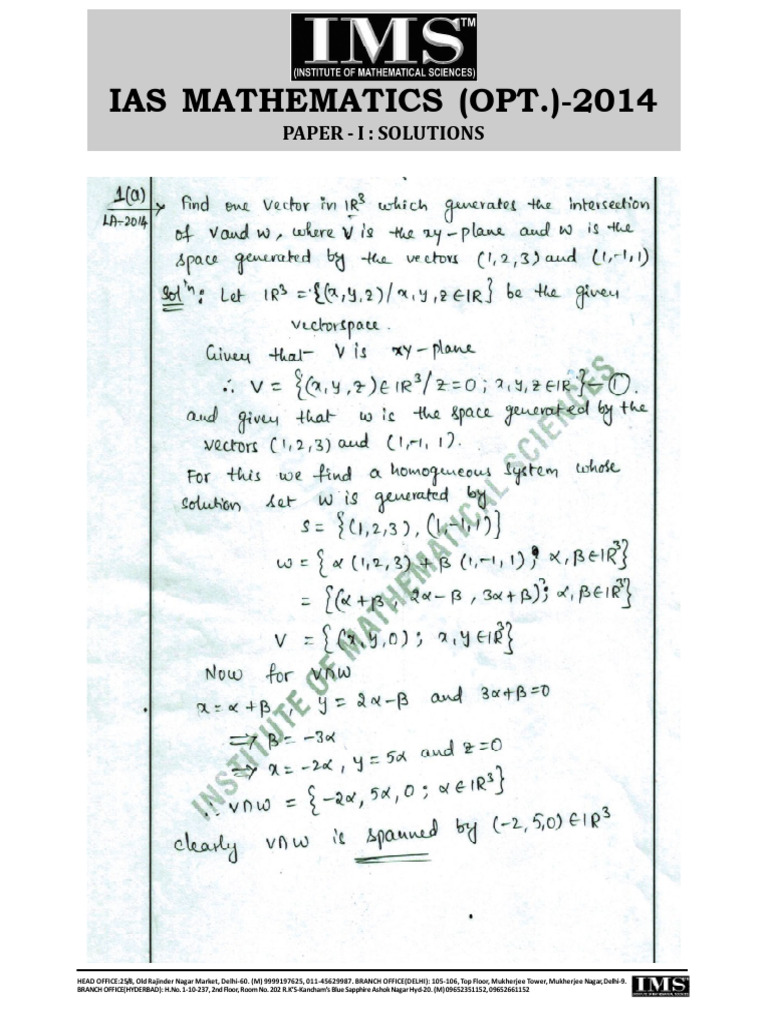 IMS™
(INSTITUTE OF MATHEMATICAL SCIENCES)
IAS MATHEMATICS (OPT.)-2014
PAPER - I : SOLUTIONS
1(a) Find one vector in IR³ which generates the intersection
LA-2014 of V and W, where V is the xy-plane and W is the
space generated by the vectors (1,2,3) and (1,-1,1)
Sol'n: Let IR³ = {(x,y,z)/x,y,z∈IR} be the given
vectorspace.
Given that V is xy-plane
∴ V = {(x,y,z)∈IR³/z=0; x,y,z∈IR} — ①.
and given that W is the space generated by the
vectors (1,2,3) and (1,-1,1).
For this we find a homogeneous system whose
solution set W is generated by
S = {(1,2,3), (1,-1,1)}
W = {α(1,2,3) + β(1,-1,1); α,β∈IR³}
= {(α+β, 2α-β, 3α+β); α,β∈IR³}
V = {(x,y,0); x,y∈IR³}
Now for V∩W
x=α+β, y=2α-β and 3α+β=0
⇒ β=-3α
⇒ x=-2α, y=5α and z=0
∴ V∩W = {-2α, 5α, 0; α∈IR³}
clearly V∩W is spanned by (-2,5,0)∈IR³
INSTITUTE OF MATHEMATICAL SCIENCES
HEAD OFFICE:25/8, Old Rajinder Nagar Market, Delhi-60. (M) 9999197625, 011-45629987. BRANCH OFFICE(DELHI): 105-106, Top Floor, Mukherjee Tower, Mukherjee Nagar, Delhi-9.
BRANCH OFFICE(HYDERBAD): H.No. 1-10-237, 2nd Floor, Room No. 202 R.K'S-Kancham's Blue Sapphire Ashok Nagar Hyd-20. (M) 09652351152, 09652661152
IMS